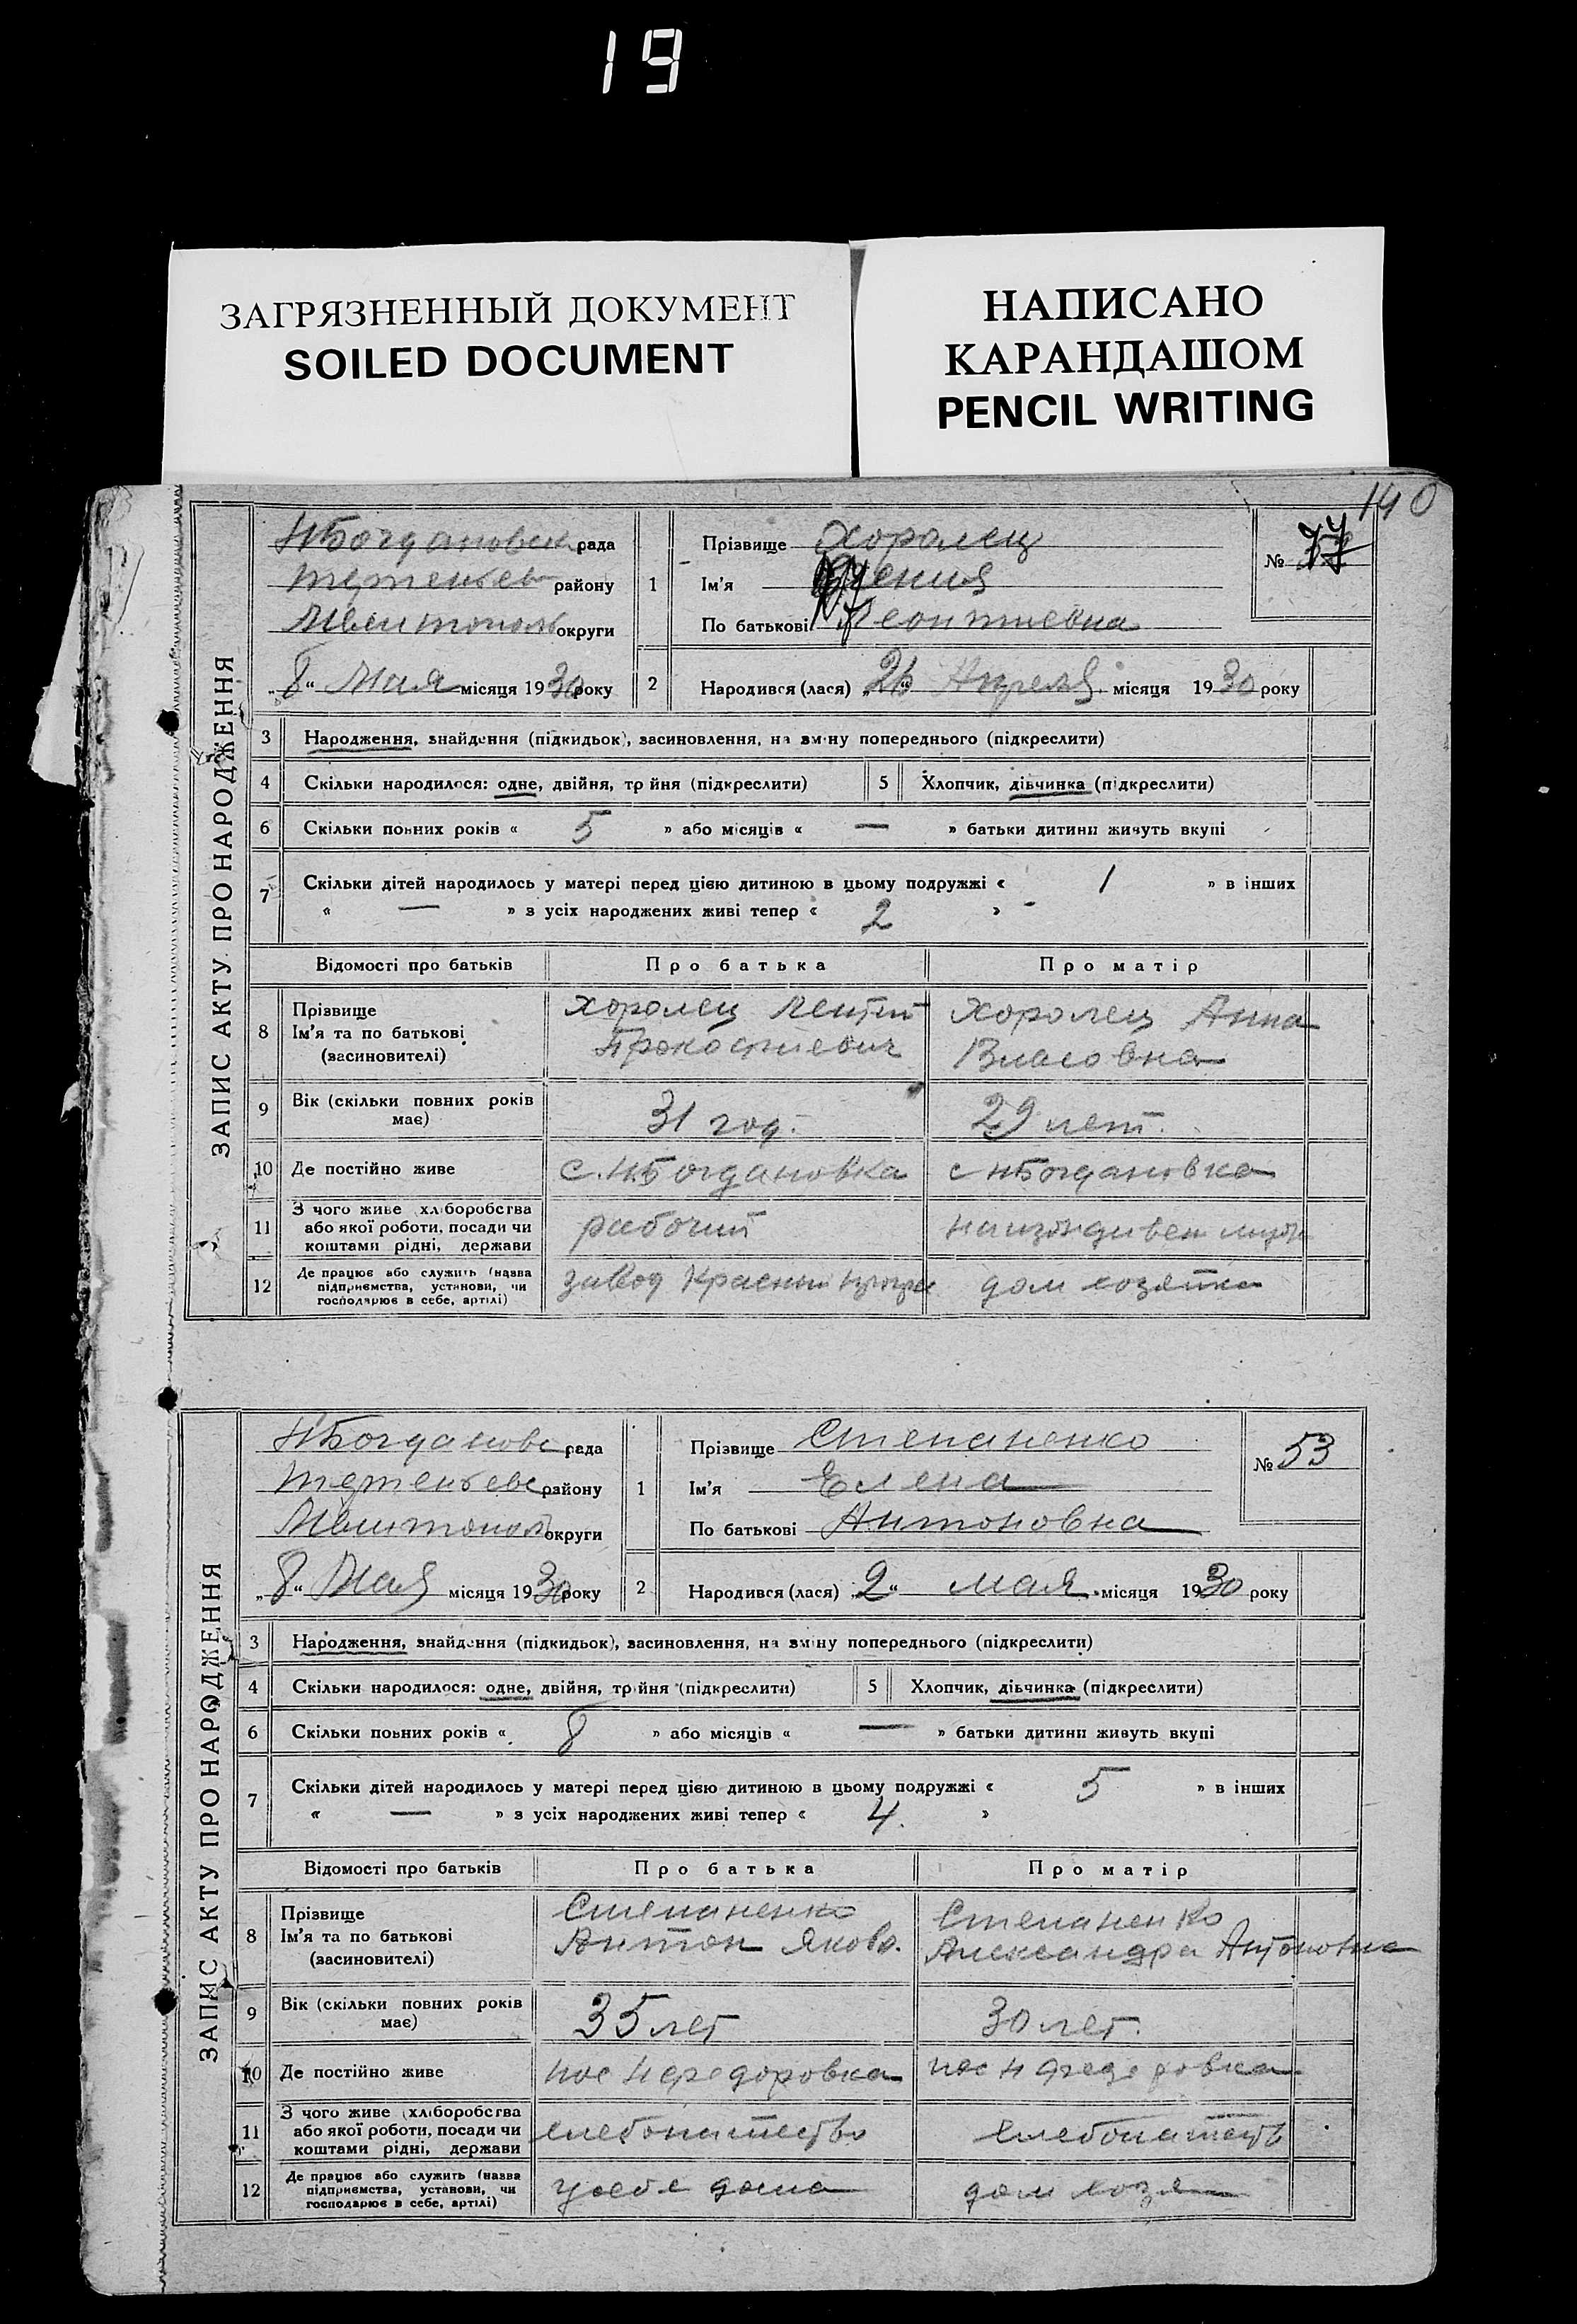 19
ЗАГРЯЗНЕННЫЙ ДОКУМЕНТ
SOILED DOCUMENT
НАПИСАНО
КАРАНДАШОМ
PENCIL WRITING
140
ЗАПИС АКТУ ПРО НАРОДЖЕННЯ
НБогдановск рада
району
округи
„8“ Мая місяця 1930 року
1 Прізвище Хоролец
Ім'я
По батькові Леонтиевна
№
2 Народився (лася) „26“ Апреля місяця 1930 року
3 Народження, знайдення (підкидьок), засиновлення, на зміну попереднього (підкреслити)
4 Скільки народилося: одне, двійня, трійня (підкреслити) 5 Хлопчик, дівчинка (підкреслити)
6 Скільки повних років « 5 » або місяців « — » батьки дитини живуть вкупі
7 Скільки дітей народилось у матері перед цією дитиною в цьому подружжі « 1 » в інших
« — » з усіх народжених живі тепер « 2 »
Відомості про батьків Про батька Про матір
8 Прізвище Ім'я та по батькові (засиновителі)
Хоролец Хоролец Анна
Прокофиевич Власовна
9 Вік (скільки повних років має) 31 год. 29 лет.
10 Де постійно живе с. Н.Богдановка с НБогдановка
11 З чого живе (хліборобства або якої роботи, посади чи коштами рідні, держави рабочий
12 Де працює або служить (назва підприємства, установи, чи господарює в себе, артілі) завод Красный дом хозяйка
ЗАПИС АКТУ ПРО НАРОДЖЕННЯ
НБогдановс рада
району
округи
„8“ Мая місяця 1930 року
1 Прізвище Степаненко
Ім'я Елена
По батькові Антоновна
№ 53
2 Народився (лася) „2“ мая місяця 1930 року
3 Народження, знайдення (підкидьок), засиновлення, на зміну попереднього (підкреслити)
4 Скільки народилося: одне, двійня, трійня (підкреслити) 5 Хлопчик, дівчинка (підкреслити)
6 Скільки повних років « 8 » або місяців « — » батьки дитини живуть вкупі
7 Скільки дітей народилось у матері перед цією дитиною в цьому подружжі « 5 » в інших
« — » з усіх народжених живі тепер « 4. »
Відомості про батьків Про батька Про матір
8 Прізвище Ім'я та по батькові (засиновителі)
Степаненко Степаненко
Антон Яковл. Александра Антоновна
9 Вік (скільки повних років має) 35 лет 30 лет.
10 Де постійно живе пос Н Федоровка пос Н Федоровка
11 З чого живе (хліборобства або якої роботи, посади чи коштами рідні, держави
12 Де працює або служить (назва підприємства, установи, чи господарює в себе, артілі) у себя дома дом хозя